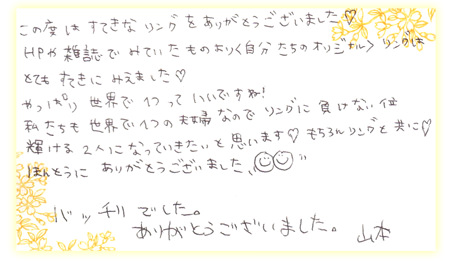 この度は すてきな リングを ありがとうございました♡
HPや 雑誌で みていた ものより〈自分 たちのオリジナル〉リングは
とても すてきに みえました♡
やっぱり 世界で 1つって いいですね!
私たちも 世界で1つの 夫婦 なので リングに 負けない 位
輝ける 2人に なっていきたいと 思います♡ もちろんリングと 共に♡
ほんとうに ありがとうございました
バッチリ でした。
ありがとうございました。 山本